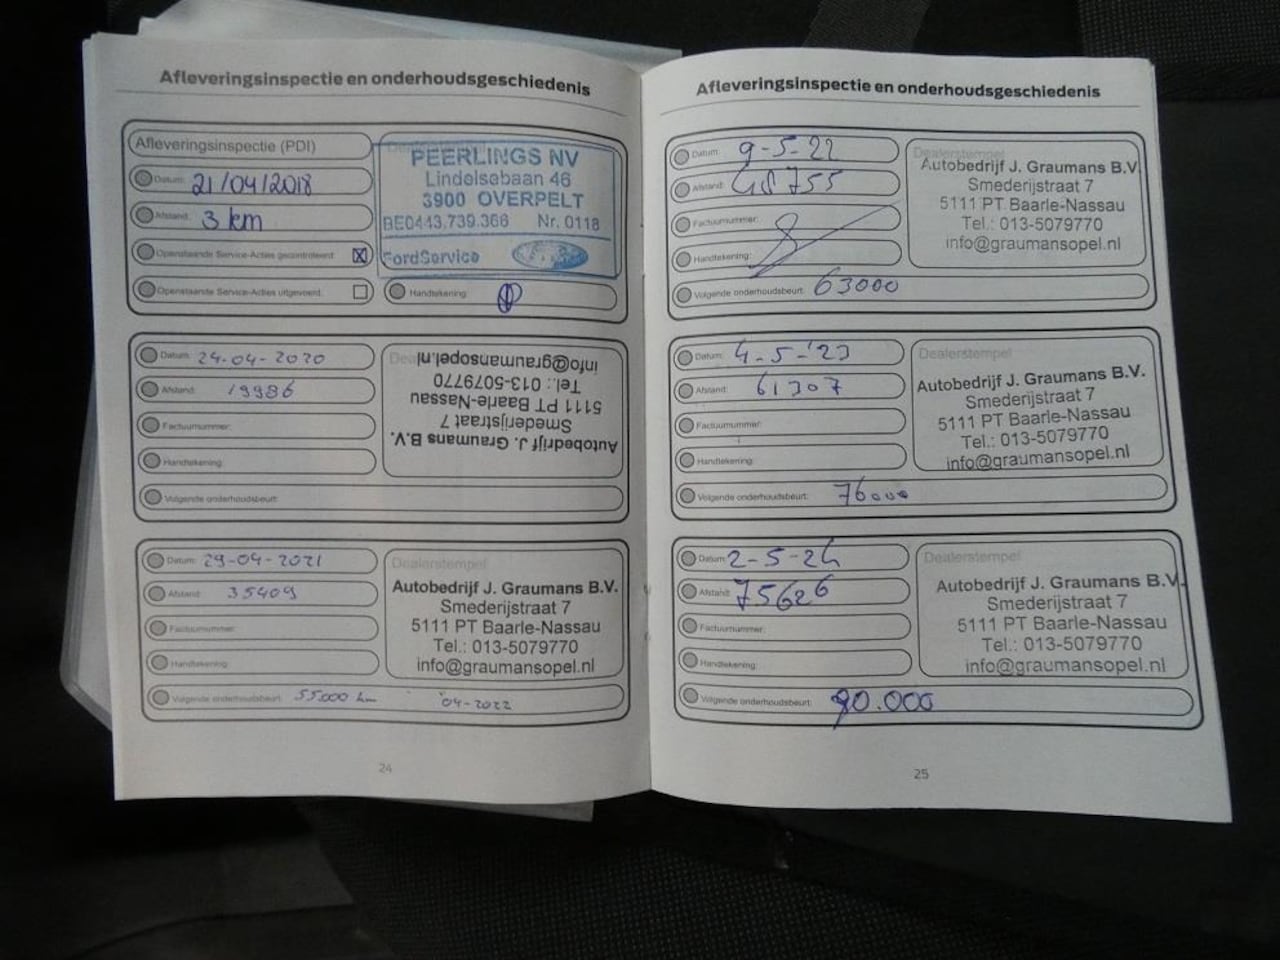 Afleveringsinspectie en onderhoudsgeschiedenis
Afleveringsinspectie (PDI)
Datum: 21/04/2018
Afstand: 3 km
Openstaande Service-Acties gecontroleerd:
Openstaande Service-Acties uitgevoerd:
PEERLINGS NV
Lindelsebaan 46
3900 OVERPELT
BE0443.739.366 Nr. 0118
FordService
Handtekening:
Datum: 24-04-2020
Afstand: 19986
Factuurnummer:
Handtekening:
Volgende onderhoudsbeurt:
Autobedrijf J. Graumans B.V.
Smederijstraat 7
5111 PT Baarle-Nassau
Tel.: 013-5079770
info@graumansopel.nl
Datum: 29-04-2021
Afstand: 35409
Factuurnummer:
Handtekening:
Volgende onderhoudsbeurt: 55000 km 04-2022
Dealerstempel
Autobedrijf J. Graumans B.V.
Smederijstraat 7
5111 PT Baarle-Nassau
Tel.: 013-5079770
info@graumansopel.nl
24
Afleveringsinspectie en onderhoudsgeschiedenis
Datum: 9-5-22
Afstand: 48755
Factuurnummer:
Handtekening:
Volgende onderhoudsbeurt: 63000
Dealerstempel
Autobedrijf J. Graumans B.V.
Smederijstraat 7
5111 PT Baarle-Nassau
Tel.: 013-5079770
info@graumansopel.nl
Datum: 4-5-'23
Afstand: 61307
Factuurnummer:
Handtekening:
Volgende onderhoudsbeurt: 76000
Dealerstempel
Autobedrijf J. Graumans B.V.
Smederijstraat 7
5111 PT Baarle-Nassau
Tel.: 013-5079770
info@graumansopel.nl
Datum: 2-5-24
Afstand: 75626
Factuurnummer:
Handtekening:
Volgende onderhoudsbeurt: 90.000
Dealerstempel
Autobedrijf J. Graumans B.V.
Smederijstraat 7
5111 PT Baarle-Nassau
Tel.: 013-5079770
info@graumansopel.nl
25